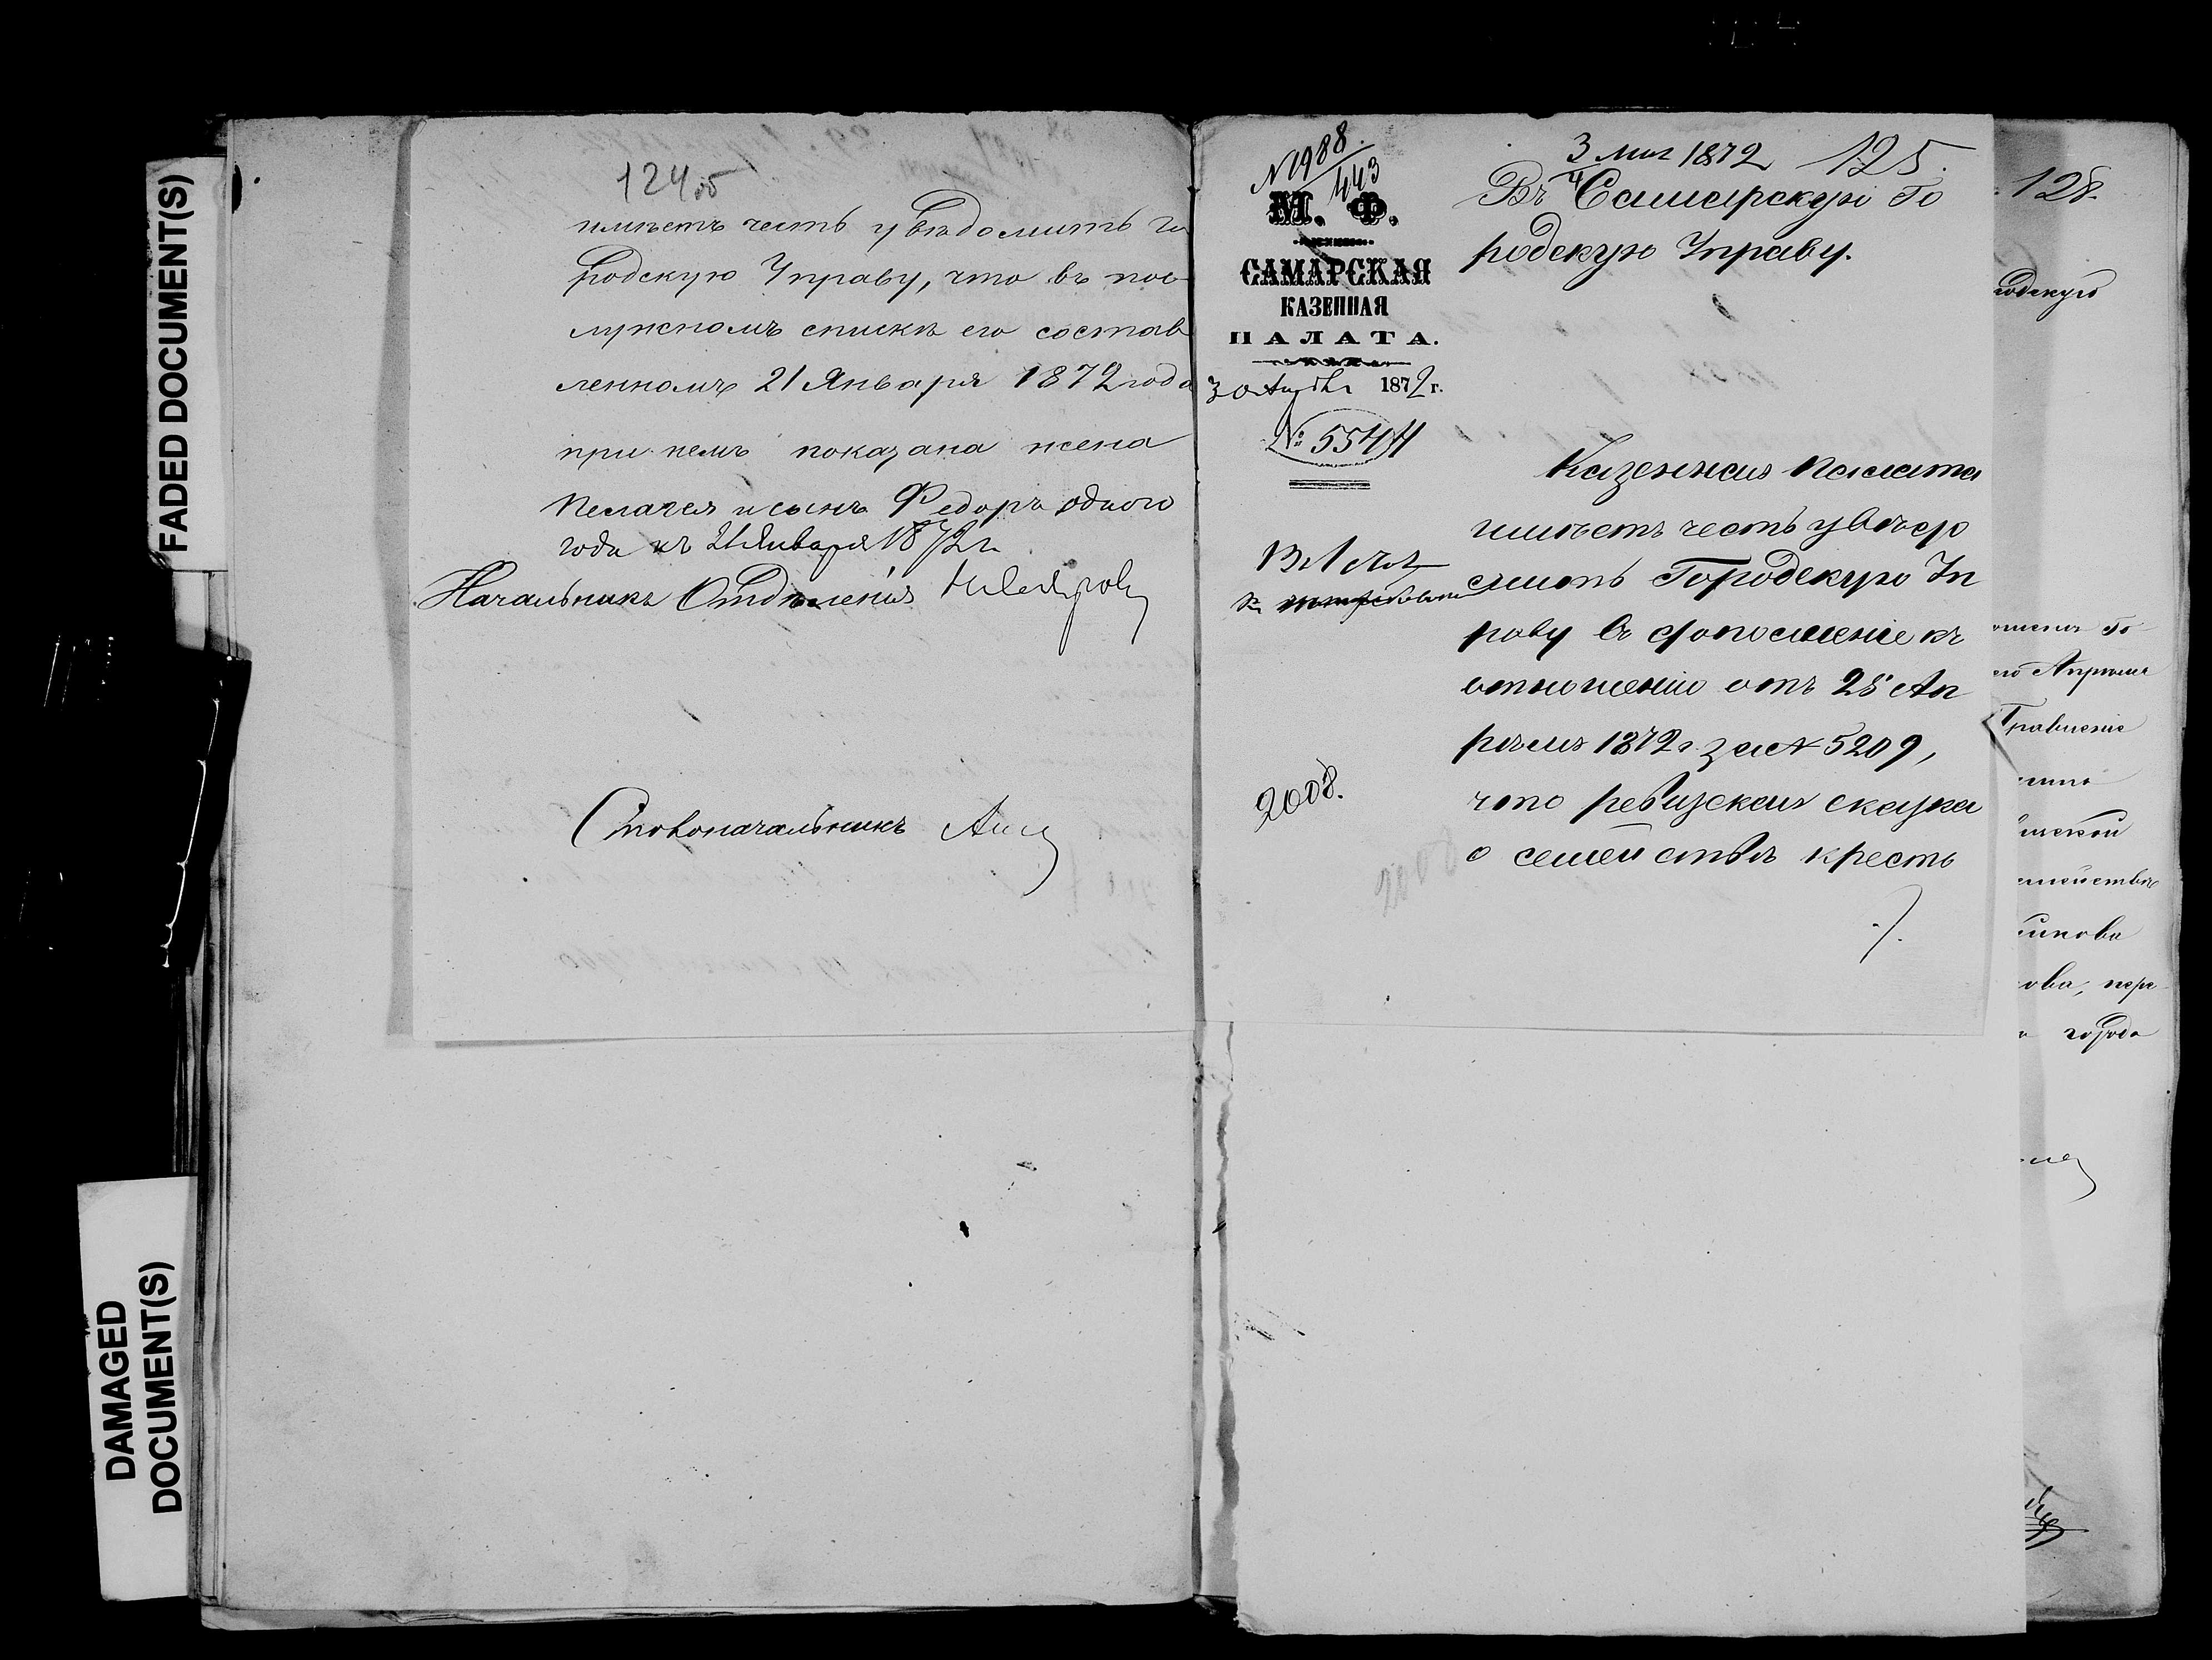 FADED DOCUMENT(S)
DAMAGED
DOCUMENT(S)
124об
имѣетъ честь увѣдомить Го
родскую Управу, что въ пос
лужномъ спискѣ его состав
ленномъ 21 Января 1872 года
при немъ показана жена
Пелагея и сынъ Федоръ одного
года къ 21 Января 1872 г.
Начальникъ Отдѣленія
Столоначальникъ
N 1988.
443
М. Ф.
САМАРСКАЯ
КАЗЕННАЯ
ПАЛАТА.
30 1872 г.
№ 5544
2008.
2008
3 Мая 1872 125.
4
Въ Самарскую Го
родскую Управу.
Казенная Палата
имѣетъ честь увѣдо
мить Городскую Уп
раву въ дополненіе къ
отношенію отъ 25 Ап
рѣля 1872 г. за N 5209,
что ревизская сказка
о семействѣ кресть
./.
128.
родскую
Го
Апрѣля
Правленіе
семействѣ
нова, пере
города